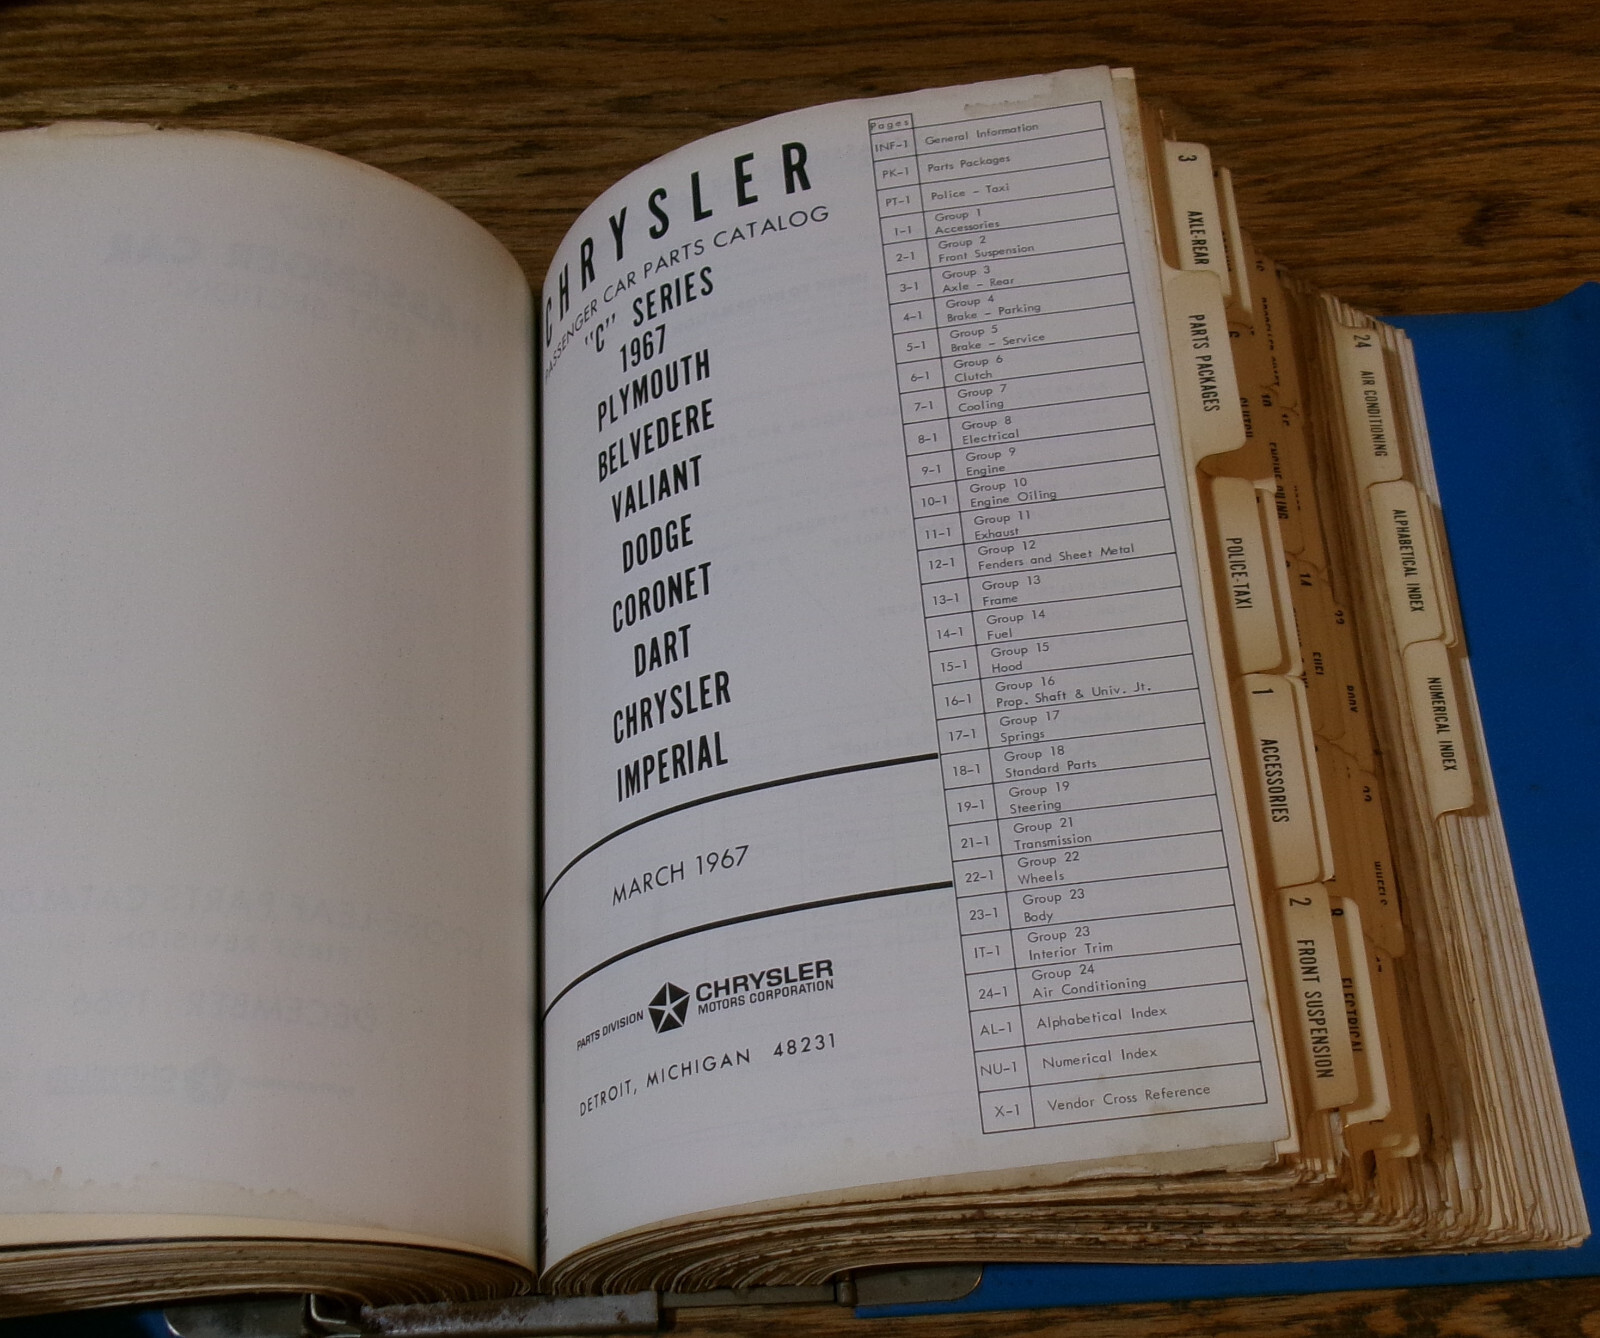 CHRYSLER
PASSENGER CAR PARTS CATALOG
"C" SERIES
1967
PLYMOUTH
BELVEDERE
VALIANT
DODGE
CORONET
DART
CHRYSLER
IMPERIAL
MARCH 1967
PARTS DIVISION
CHRYSLER
MOTORS CORPORATION
DETROIT, MICHIGAN 48231
Pages
INF-1 General Information
PK-1 Parts Packages
PT-1 Police - Taxi
1-1 Group 1
Accessories
2-1 Group 2
Front Suspension
3-1 Group 3
Axle - Rear
4-1 Group 4
Brake - Parking
5-1 Group 5
Brake - Service
6-1 Group 6
Clutch
7-1 Group 7
Cooling
8-1 Group 8
Electrical
9-1 Group 9
Engine
10-1 Group 10
Engine Oiling
11-1 Group 11
Exhaust
12-1 Group 12
Fenders and Sheet Metal
13-1 Group 13
Frame
14-1 Group 14
Fuel
15-1 Group 15
Hood
16-1 Group 16
Prop. Shaft & Univ. Jt.
17-1 Group 17
Springs
18-1 Group 18
Standard Parts
19-1 Group 19
Steering
21-1 Group 21
Transmission
22-1 Group 22
Wheels
23-1 Group 23
Body
IT-1 Group 23
Interior Trim
24-1 Group 24
Air Conditioning
AL-1 Alphabetical Index
NU-1 Numerical Index
X-1 Vendor Cross Reference
3 AXLE-REAR
PARTS PACKAGES
POLICE-TAXI
1 ACCESSORIES
2 FRONT SUSPENSION
ELECTRICAL
14
22
BODY
WHEELS
24 AIR CONDITIONING
ALPHABETICAL INDEX
NUMERICAL INDEX